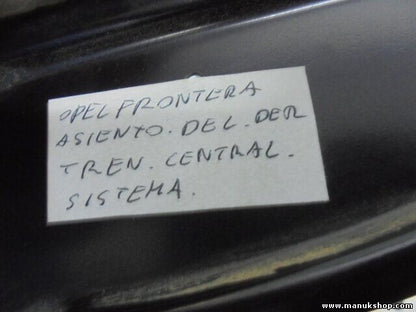 OPEL FRONTERA
ASIENTO. DEL. DER
TREN. CENTRAL.
SISTEMA.
www.manukshop.com